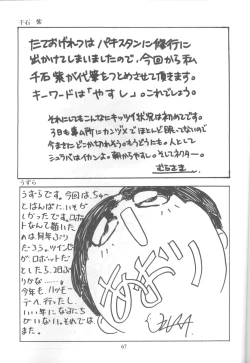 千石 紫
たておげれつは パキスタンに修行に
出かけてしまいましたので、今回から私
千石紫が代筆をつとめさせて頂きます。
キーワードは「やすし」。これでしょう。
それにしてもこんなにキッツイ状況は初めてです。
3日も事ム所にカンヅメでほとんど眠ってないので
今まさにどーかわれそう。もうどうにも。人として
シュラバはイカンよ。朝からやすし。そしてネクター。
むらさき
うずら
うずらです。今回は、ちょっ
とはんぱに
がったです。ロボッ
トなんて描いた
のは何年ぶり
だろう。ツイン
がロボットだ
としたら、
りかな……。
今年も、ハッピー
行ったし、
いい年になるにち
がいない。それでは
また
67